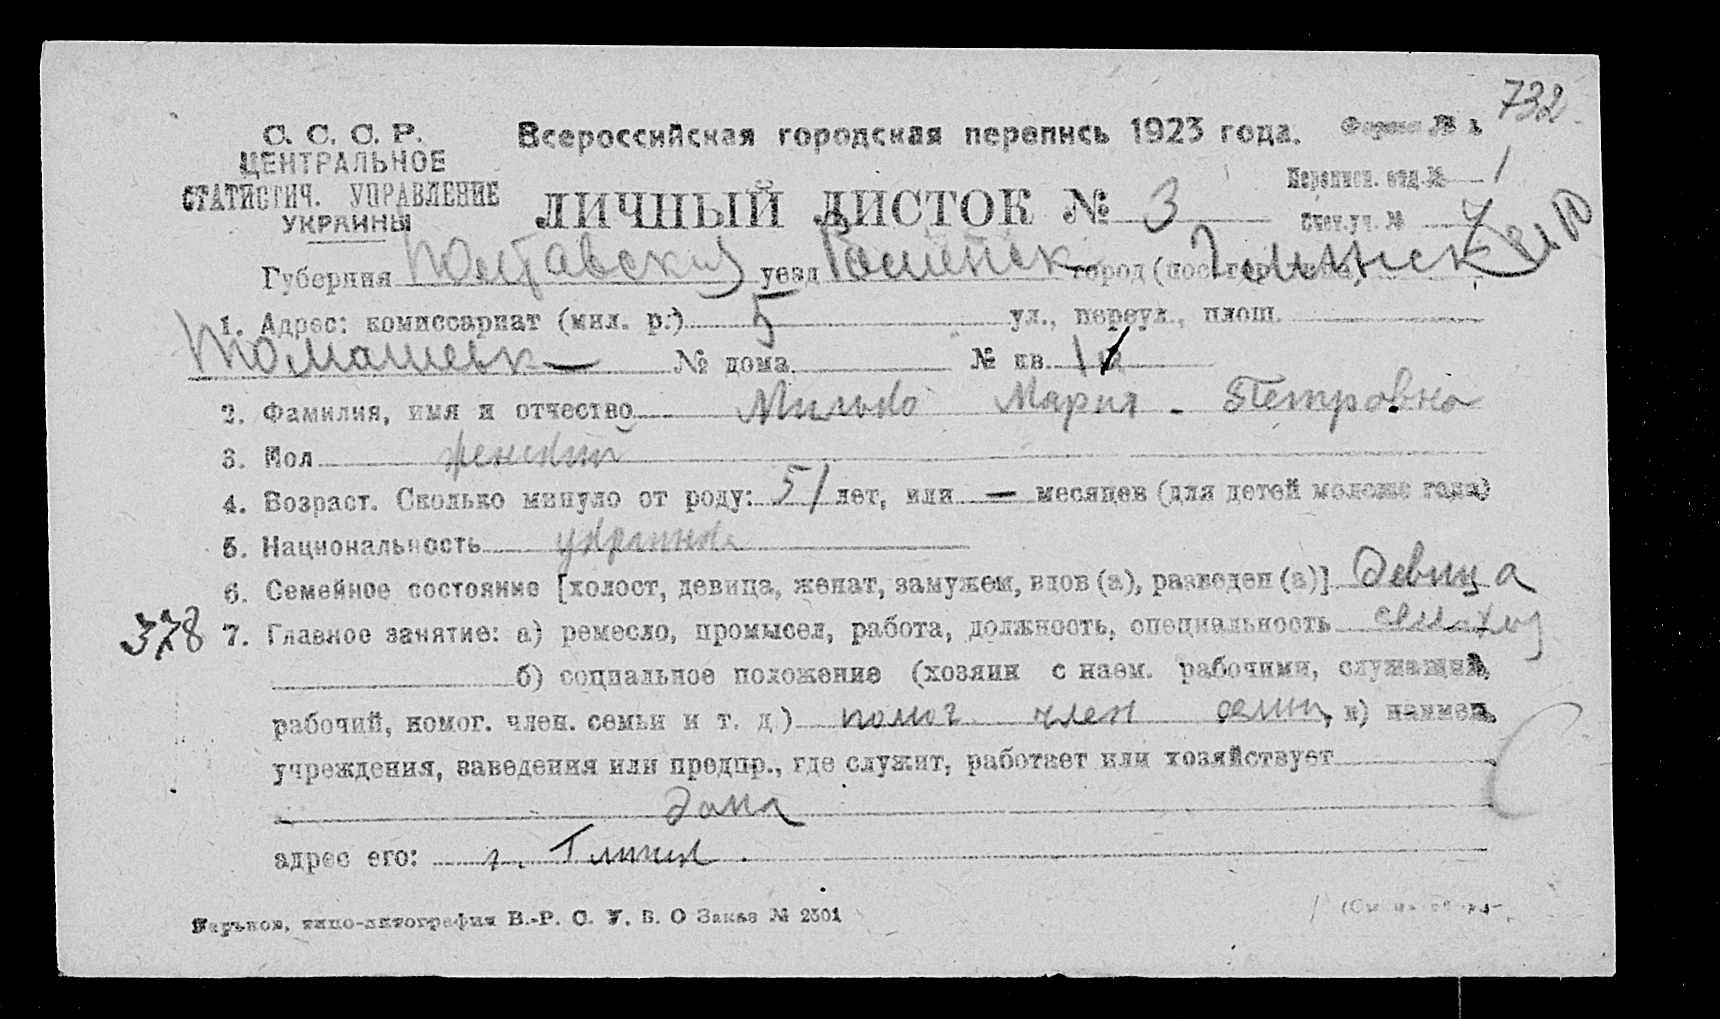 732
С. С. С. Р.
ЦЕНТРАЛЬНОЕ
СТАТИСТИЧ. УПРАВЛЕНИЕ
УКРАИНЫ
Всероссийская городская перепись 1923 года. Форма № 1.
Переписн. отд. № 1
ЛИЧНЫЙ ЛИСТОК № 3
Счет. уч. № 4
Губерния Полтавский уезд Роменск город (пос. Глинск
1. Адрес: комиссариат (мил. р.) 5 ул., переул., площ.
Томашевск № дома № кв.
2. Фамилия, имя и отчество Мария Петровна
3. Пол женский
4. Возраст. Сколько минуло от роду: 51 лет, или — месяцев (для детей моложе года)
5. Национальность украинка
6. Семейное состояние [холост, девица, женат, замужем, вдов (а), разведен (а)] Девица
378 7. Главное занятие: а) ремесло, промысел, работа, должность, специальность
б) социальное положение (хозяин с наем. рабочими, служащий,
рабочий, помог. член. семьи и т. д.) помог член семьи, в) наимен.
учреждения, заведения или предпр., где служит, работает или хозяйствует
дома
адрес его: г. Глинск.
Харьков, типо-литография В.-Р. С. У. В. О Заказ № 2301